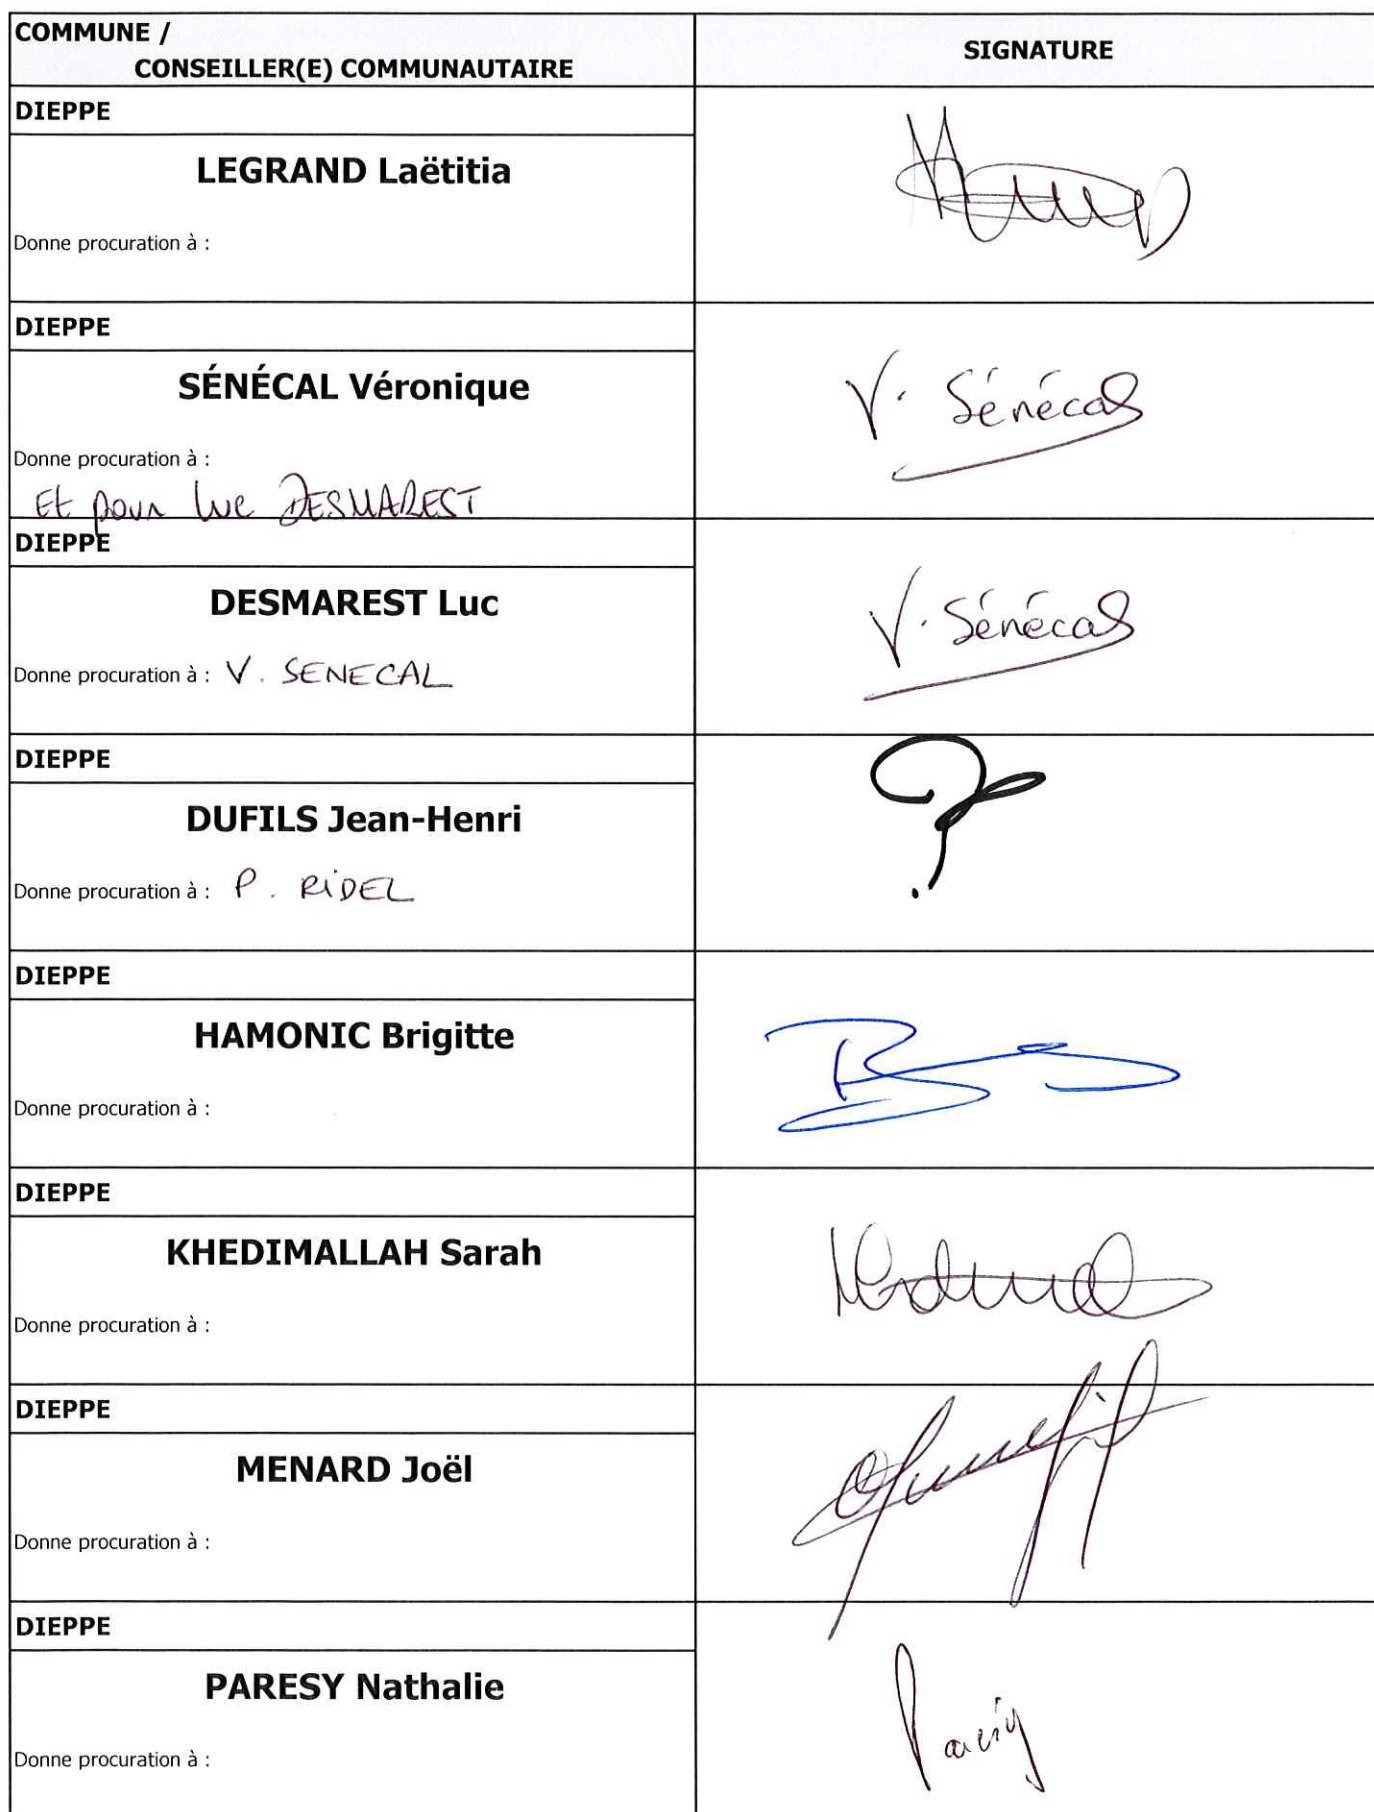 COMMUNE /
CONSEILLER(E) COMMUNAUTAIRE
SIGNATURE
DIEPPE
LEGRAND Laëtitia
Donne procuration à :
DIEPPE
SÉNÉCAL Véronique
V. Sénécal
Donne procuration à :
Et pour Luc DESMAREST
DIEPPE
DESMAREST Luc
V. Sénécal
Donne procuration à : V. SENECAL
DIEPPE
DUFILS Jean-Henri
Donne procuration à : P. RiDEL
DIEPPE
HAMONIC Brigitte
Donne procuration à :
DIEPPE
KHEDIMALLAH Sarah
Donne procuration à :
DIEPPE
MENARD Joël
Donne procuration à :
DIEPPE
PARESY Nathalie
Donne procuration à :